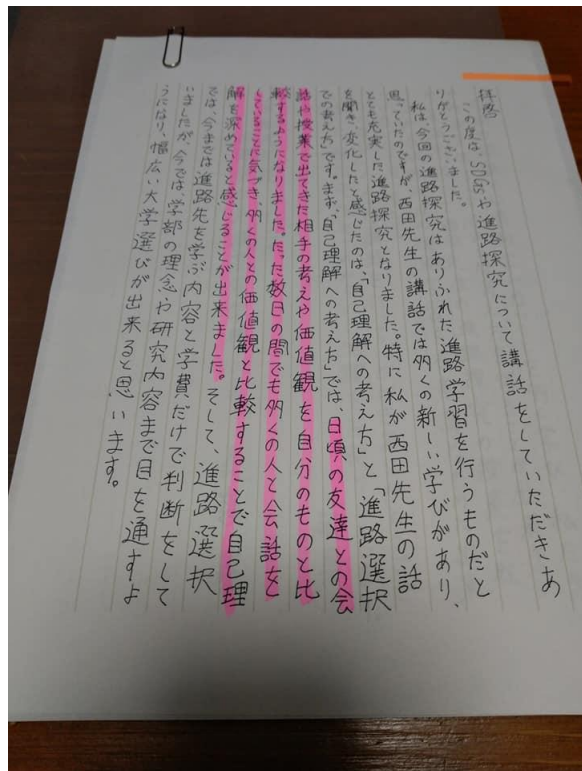 拝啓
この度は、SDGsや進路探究について講話をしていただきあ
りがとうございました。
私は、今回の進路探究はありふれた進路学習を行うものだと
思っていたのですが、西田先生の講話では多くの新しい学びがあり、
とても充実した進路探究となりました。特に私が西田先生の話
を聞き、変化したと感じたのは、「自己理解への考え方」と「進路選択
での考え方」です。まず、「自己理解への考え方」では、日頃の友達との会
話や授業で出てきた相手の考えや価値観を自分のものと比
較するようになりました。たった数日の間でも多くの人と会話を
していることに気づき、多くの人との価値観と比較することで自己理
解を深めていると感じることが出来ました。そして、進路選択
では、今までは進路先を学ぶ内容と学費だけで判断をして
いましたが、今では、学部の理念や研究内容まで目を通すよ
うになり、幅広い大学選びが出来ると思います。